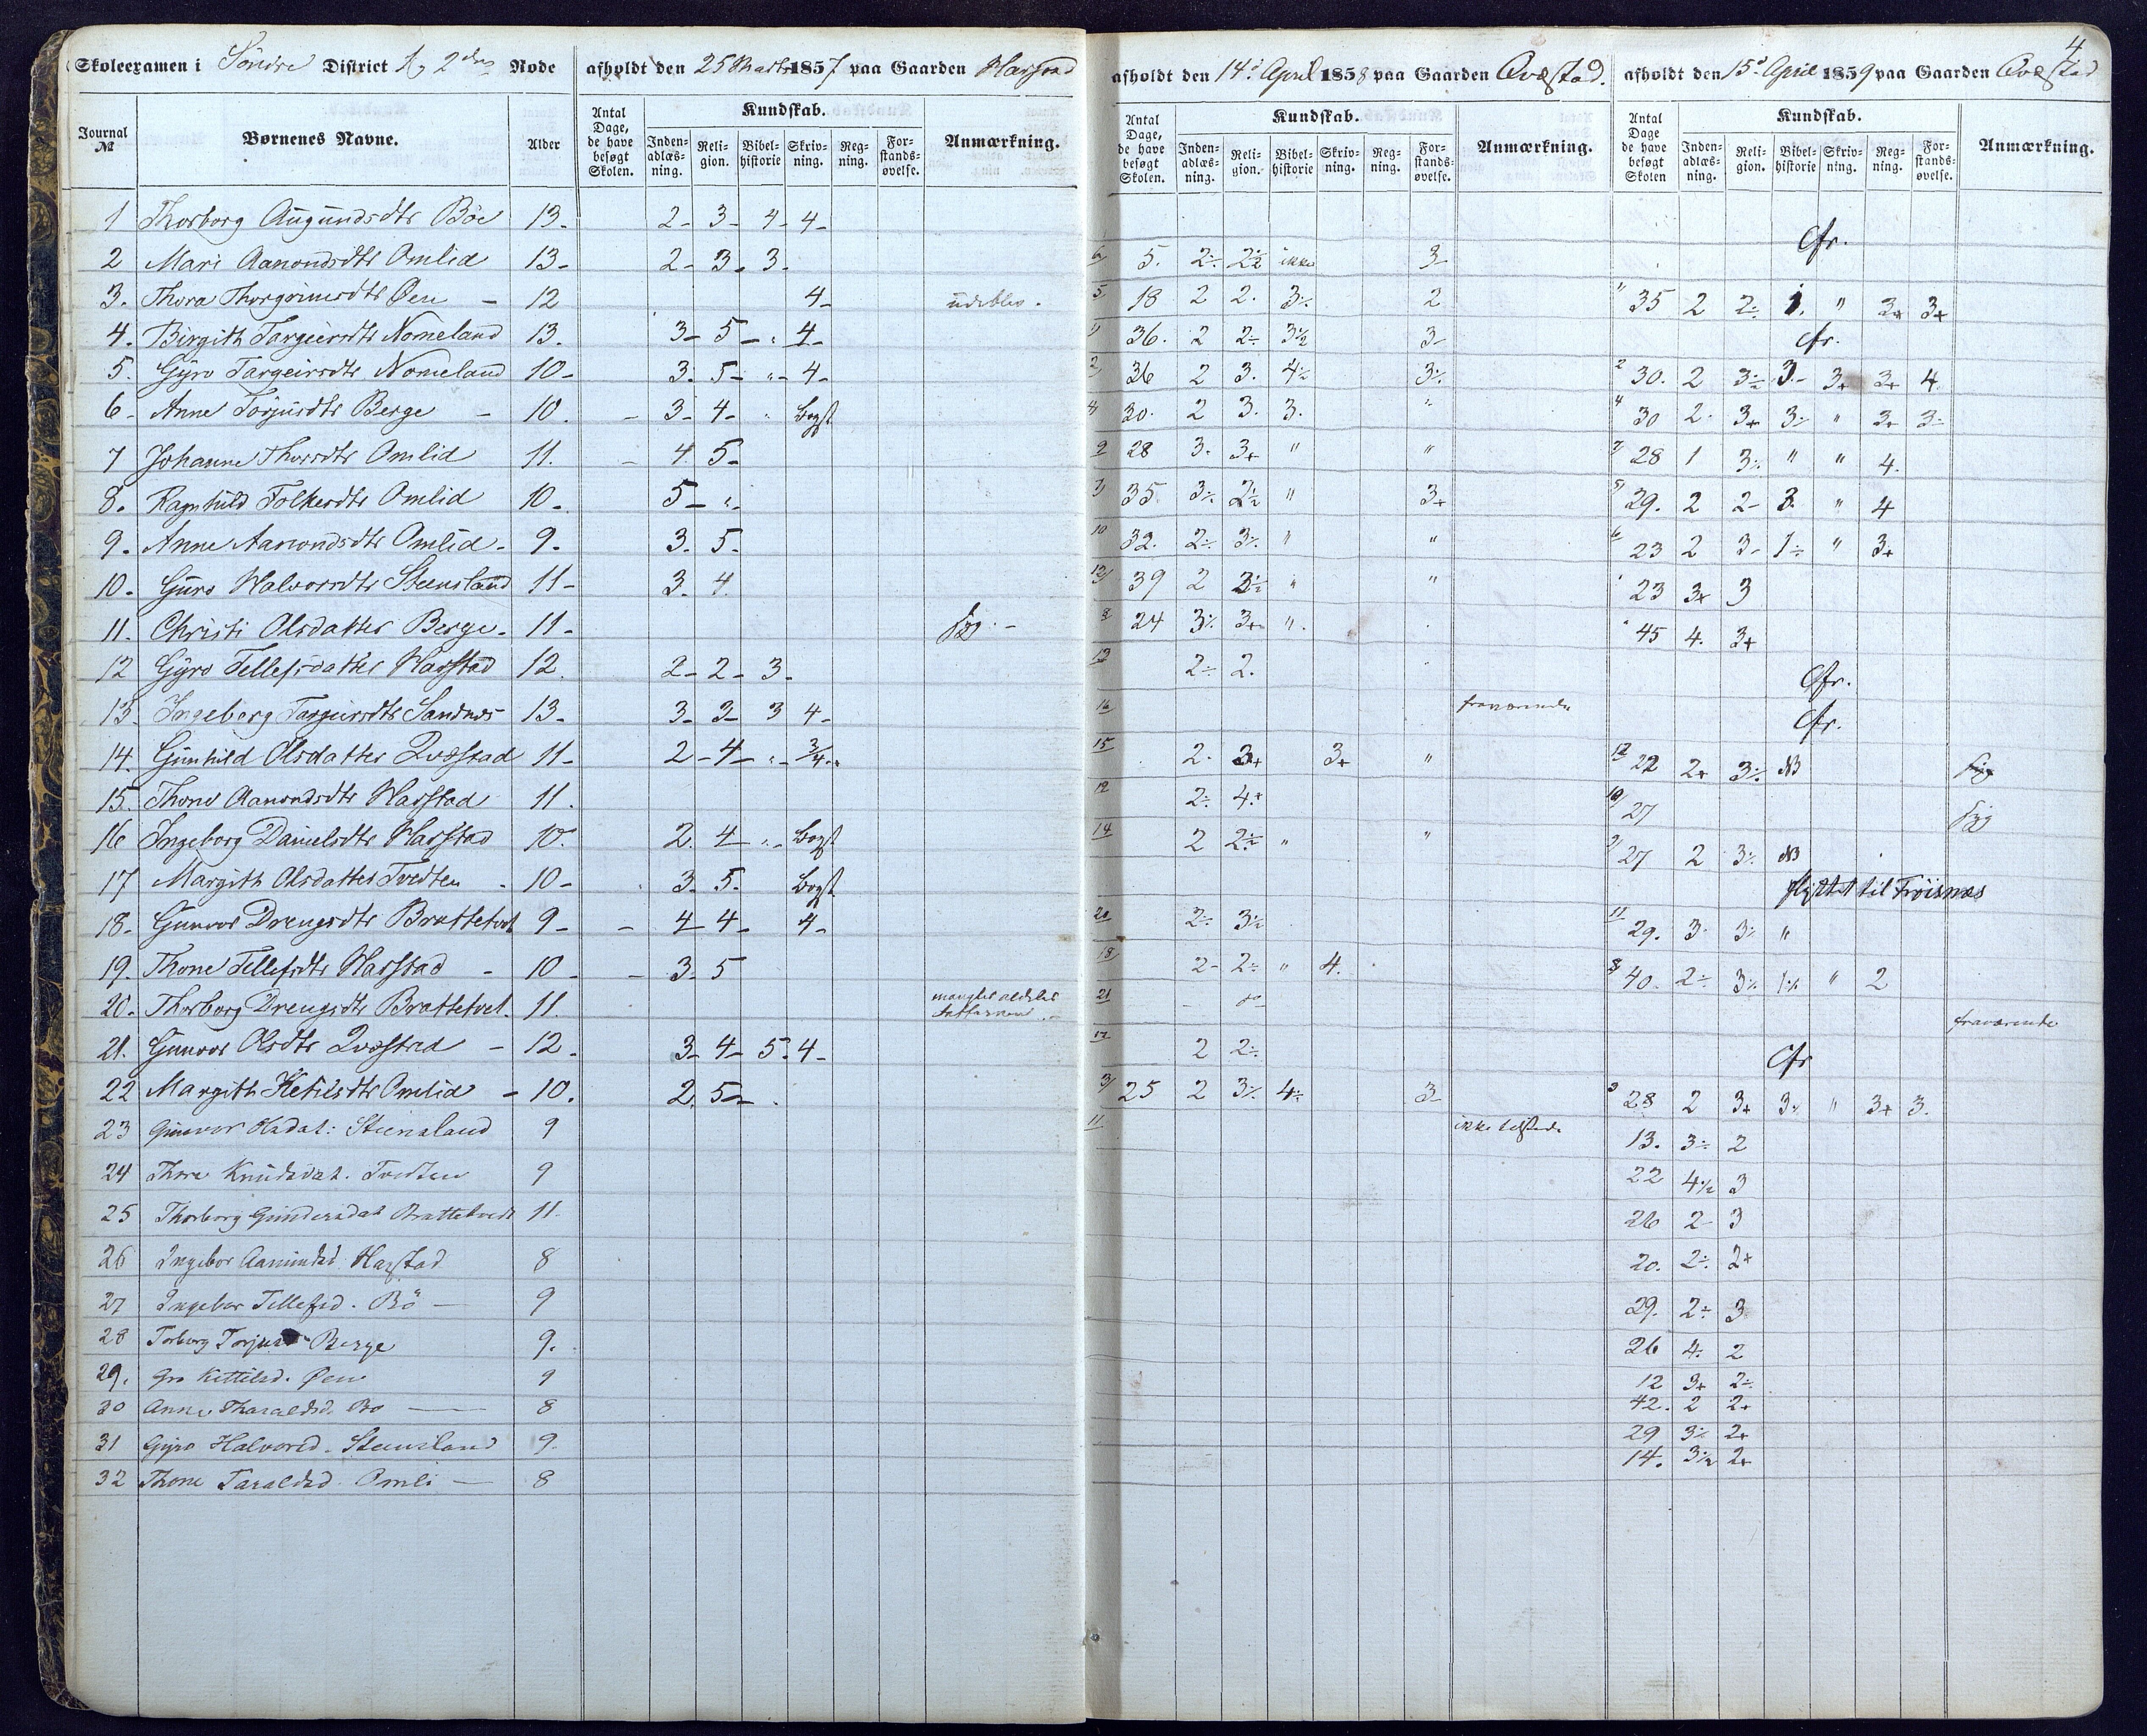 4
Skoleexamen i Söndre District 2den Rode afholdt den 25 Marts 1857 paa Gaarden Harstad afholdt den 14d April 1858 paa Gaarden Qvæstad. afholdt den 15d April 1859 paa Gaarden Qvæstad
Journal № Børnenes Navne. Alder Antal Dage, de have besøgt Skolen. Kundskab. Inden-adlæs-ning. Reli-gion. Bibel-historie Skriv-ning. Reg-ning. For-stands-øvelse. Anmærkning. Antal Dage, de have besøgt Skolen. Kundskab. Inden-adlæs-ning. Reli-gion. Bibel-historie Skriv-ning. Reg-ning. For-stands-øvelse. Anmærkning. Antal Dage de have besøgt Skolen Kundskab. Inden-adlæs-ning. Reli-gion. Bibel-historie Skriv-ning. Reg-ning. For-stands-øvelse. Anmærkning.
1 Thorborg Augundsdtr Böe 13- 2- 3- 4- 4- Cfr.
2 Mari Aanondsdtr Omlid 13- 2- 3- 3- 6/ 5. 2÷ 2½ ikke 3-
3. Thora Thorgrimsdtr Øen - 12 4- udeblev. 5 18 2 2. 3÷ 2 " 35 2 2÷ 1. " 3+ 3+
4. Birgith Targeirsdtr Nomeland 13. 3- 5- " 4- 1/ 36. 2 2÷ 3½ 3- Cfr.
5. Gyro Targeirsdtr Nomeland 10- 3. 5- "- 4- 2/ 36 2 3. 4½ 3÷ 2 30. 2 3½ 3- 3+ 3+ 4.
6- Anne Torjusdtr Berge - 10. - 3- 4- " Bogst 4/ 30. 2 3. 3. " 4 30 2. 3+ 3÷ " 3+ 3-
7 Johanne Thorsdtr Omlid 11. - 4. 5- 9 28 3. 3+ " " 7/ 28 1 3÷ " " 4.
8. Ragnhild Folkesdtr Omlid 10- 5- "- 7/ 35. 3÷ 2½ " 3+ 5/ 29. 2 2- 3. " 4
9. Anne Aanondsdtr Omlid- 9. 3. 5- 10 32. 2÷ 3÷ " " 6 23 2 3- 1÷ " 3+
10. Guro Halvorsdtr Steensland 11- 3. 4. 13/ 39 2 3½ " " 23 3+ 3
11. Christi Olsdatter Berge- 11- syg.- 8 24 3÷ 3+ ". 45 4. 3+
12 Gyro Tellefsdatter Harstad 12. 2- 2- 3- 13 2÷ 2. Cfr.
13. Ingeborg Targeirsdtr Sandnes 13- 3- 3- 3 4- 16 fraværende Cfr.
14. Gunhild Olsdatter Qvæstad 11- 2- 4- "- 3/4 15 2. 3+ 3+ " 12 22 2+ 3÷ NB syg
15. Thone Aanondsdtr Harstad 11. 12 2÷ 4+ 10/ 27 syg
16 Ingeborg Danielsdtr Harstad 10. 2. 4- "- Bogst 14 2 2½ " " 9/ 27 2 3÷ NB
17 Margith Olsdatter Tvedten - 10- 3. 5- Bogst flyttet til Fröisnæs
18- Gunvor Drengsdtr Brattetvet 9- - 4- 4- 4- 20 2÷ 3½ 11 29. 3. 3÷ "
19. Thone Tellefsdtr Harstad - 10- - 3- 5 18 2- 2÷ " 4. 8 40. 2÷ 3÷ 1÷ " 2
20. Thorborg Drengsdtr Brattetvet. 11. mangler aldeles 21 fraværende
21. Gunvor Olsdtr Qvæstad - 12. 3- 4- 5. 4- 17 2 2÷ Cfr
22 Margith Ketilsdtr Omlid - 10. 2. 5- 3/ 25 2 3÷ 4÷ 3- 3 28 2 3+ 3÷ " 3+ 3.
23 Gunvor Hadat: Steensland 9 11 ikke tilstede 13. 3÷ 2
24 Thore Knudsdat. Tvedten 9 22 4½ 3
25 Thorborg Gundersdat Brattetvedt 11. 26 2- 3
26 Ingebor Aanundsd. Harstad 8 20. 2÷ 2+
27 Ingebor Tellefsd. Bö - 9 29. 2÷ 3
28 Torborg Torjusd Berge 9. 26 4. 2
29. Gro Kittilsd. Øen 9 12 3+ 2÷
30 Anne Tharaldsd. Bö - 8 42. 2 2+
31 Gyro Halvorsd. Steensland 9. 29 3÷ 2+
32 Thone Taraldsd. Omli - 8 14. 3½ 2+